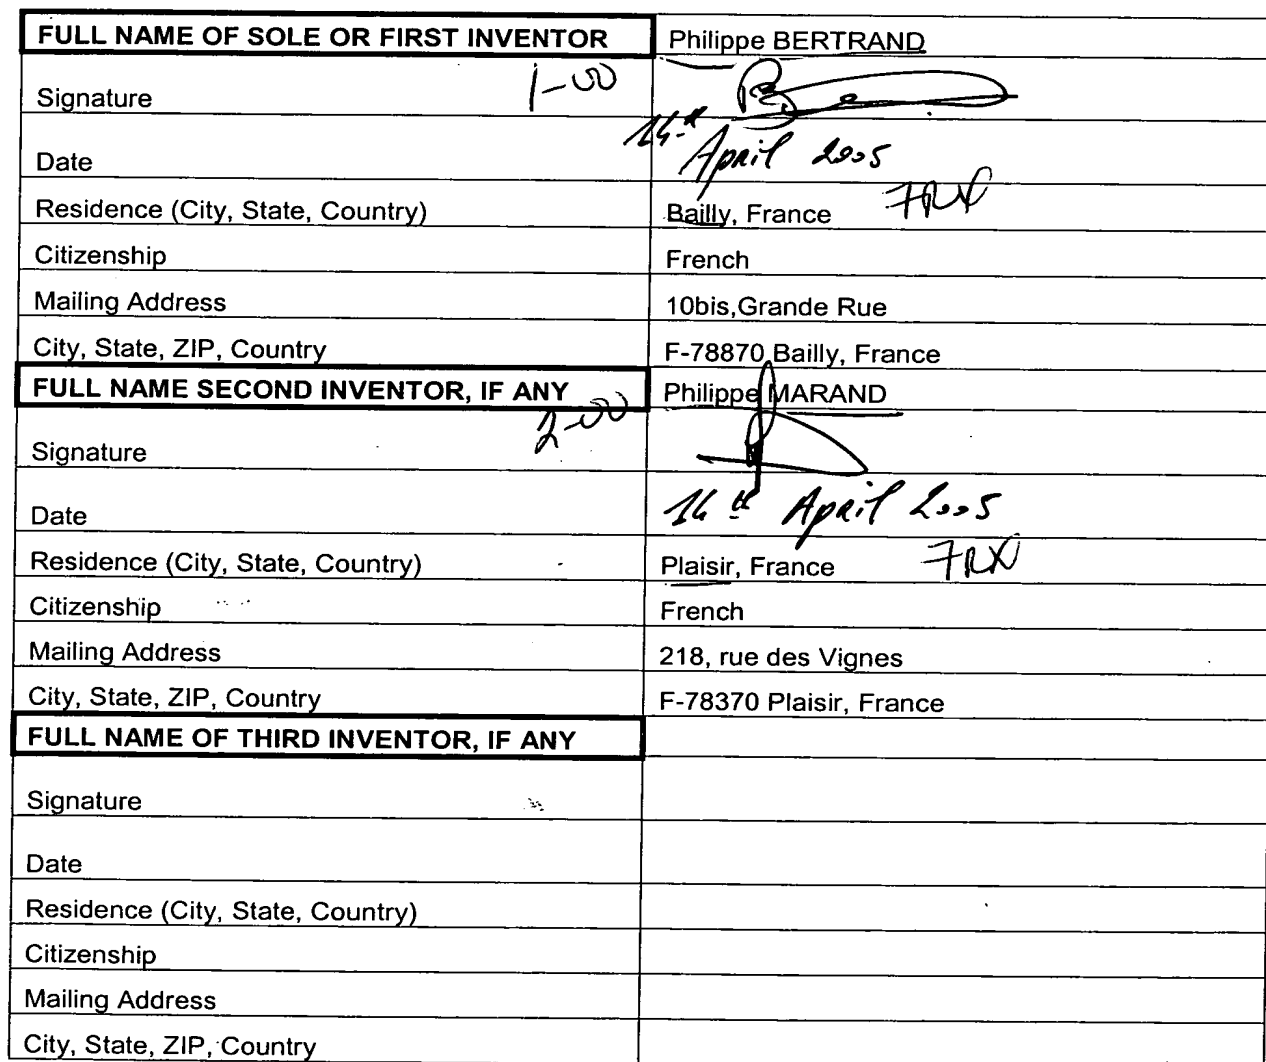 FULL NAME OF SOLE OR FIRST INVENTOR Philippe BERTRAND
Signature 1-00
Date 14th April 2005
Residence (City, State, Country) Bailly, France FRX
Citizenship French
Mailing Address 10bis,Grande Rue
City, State, ZIP, Country F-78870 Bailly, France
FULL NAME SECOND INVENTOR, IF ANY Philippe MARAND
Signature 2-00
Date 14th April 2005
Residence (City, State, Country) Plaisir, France FRX
Citizenship French
Mailing Address 218, rue des Vignes
City, State, ZIP, Country F-78370 Plaisir, France
FULL NAME OF THIRD INVENTOR, IF ANY
Signature
Date
Residence (City, State, Country)
Citizenship
Mailing Address
City, State, ZIP, Country